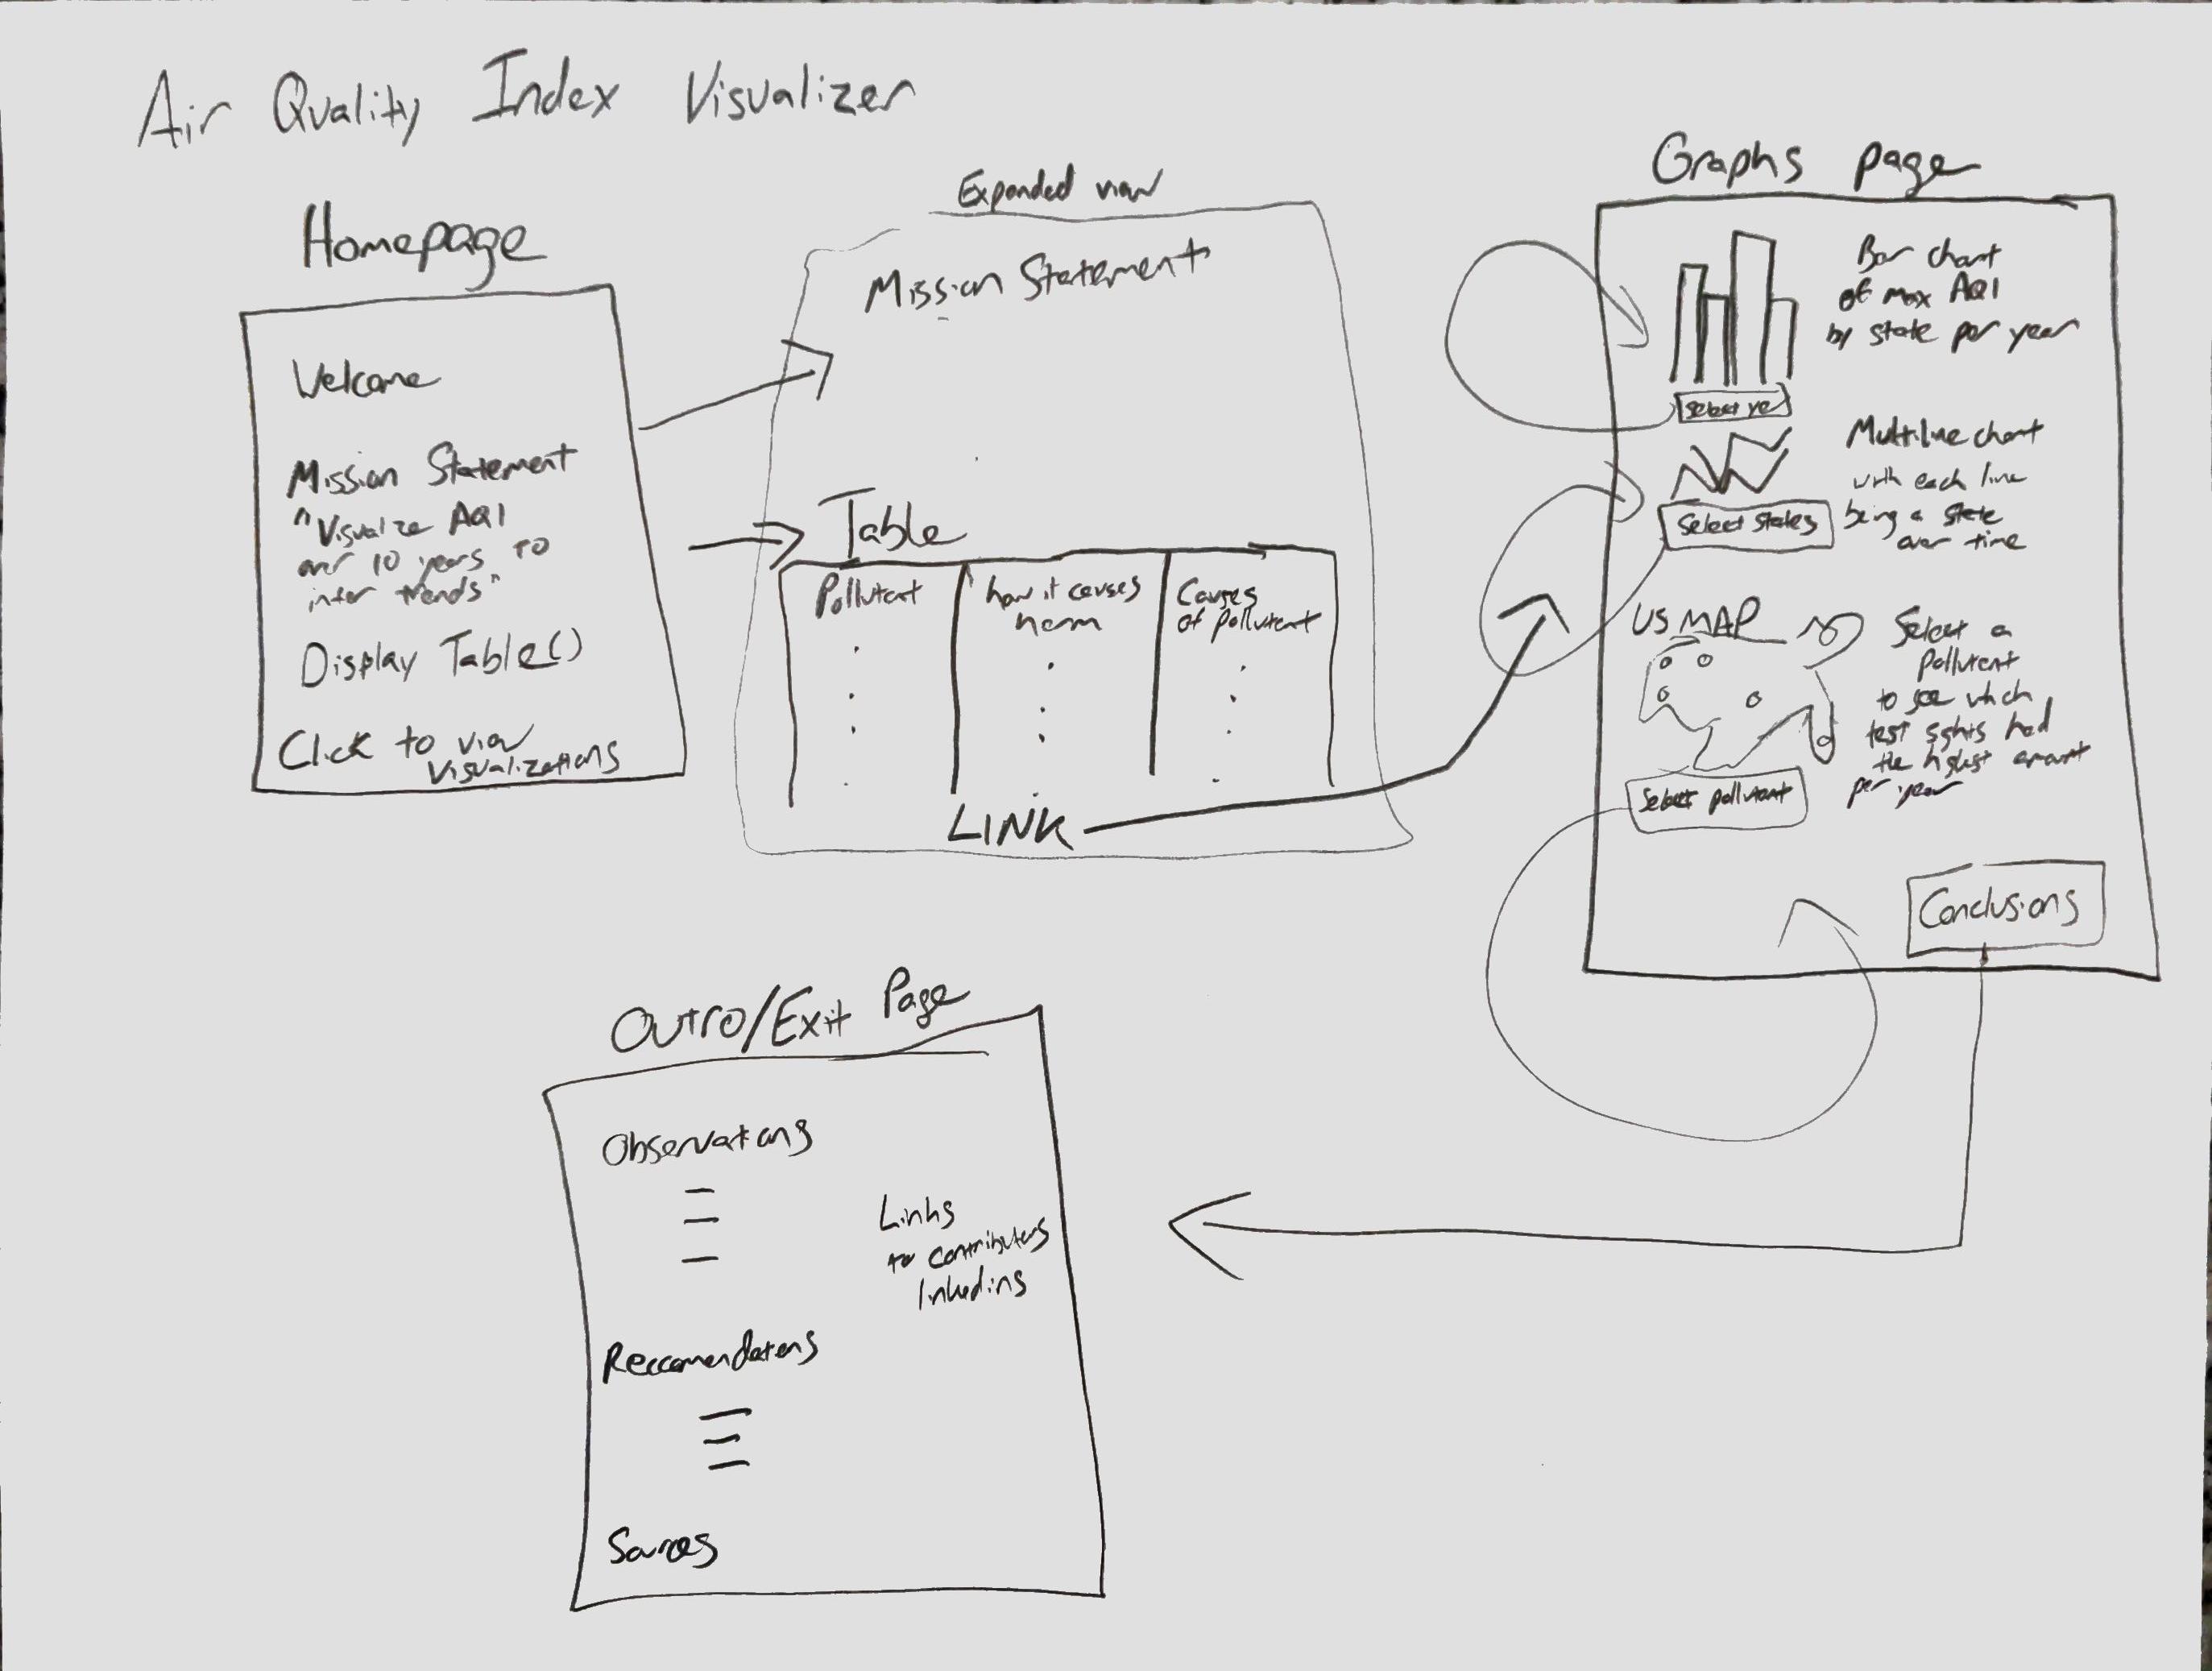 Air Quality Index Visualizer
Homepage
Welcome
Mission Statement
"Visualize AQI
over 10 years to
infer trends"
Display Table()
Click to view
Visualizations
Expanded view
Mission Statement
Table
Pollutant
how it causes
harm
Causes
of pollutant
LINK
Graphs page
Bar chart
of max AQI
by state per year
Select ye
Multiline chart
with each line
being a state
over time
Select states
US MAP
Select a
pollutant
to see which
test sights had
the highest amount
per year
Select pollutant
Conclusions
Outro/Exit Page
Observations
Links
to contributers
linkedins
Reccomendations
Sources